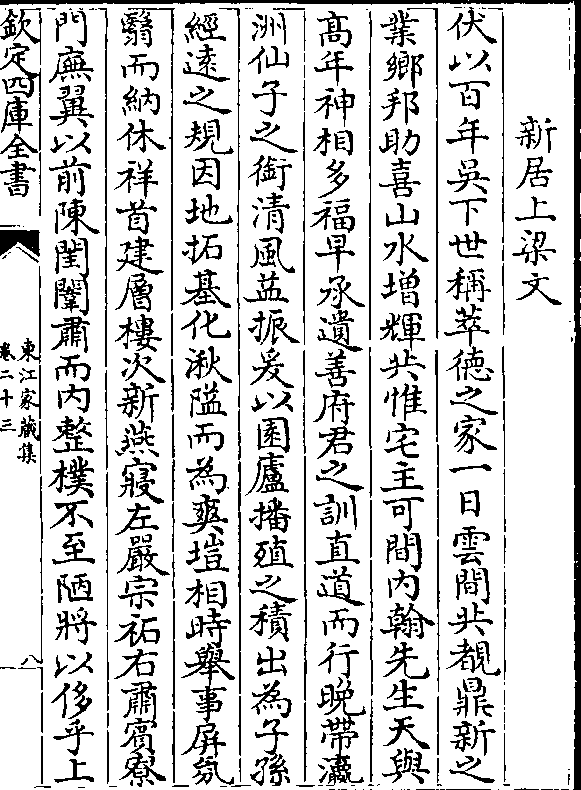 新居上梁文
伏以百年吳下世稱萃德之家一日雲間共覩鼎新之
業鄉邦助喜山水增輝共惟宅主可間內翰先生天與
髙年神相多福早承遺善府君之訓直道而行晚帶瀛
洲仙子之銜清風益振爰以園廬播殖之積出為子孫
經逺之規因地拓基化湫隘而為爽塏相時舉事屏氛
翳而納休祥首建層樓次新燕寢左嚴宗祏右肅賓寮
門廡翼以前陳閨闥肅而内整樸不至陋將以侈乎上
欽定四庫全書
東江家藏集
卷二十三
八